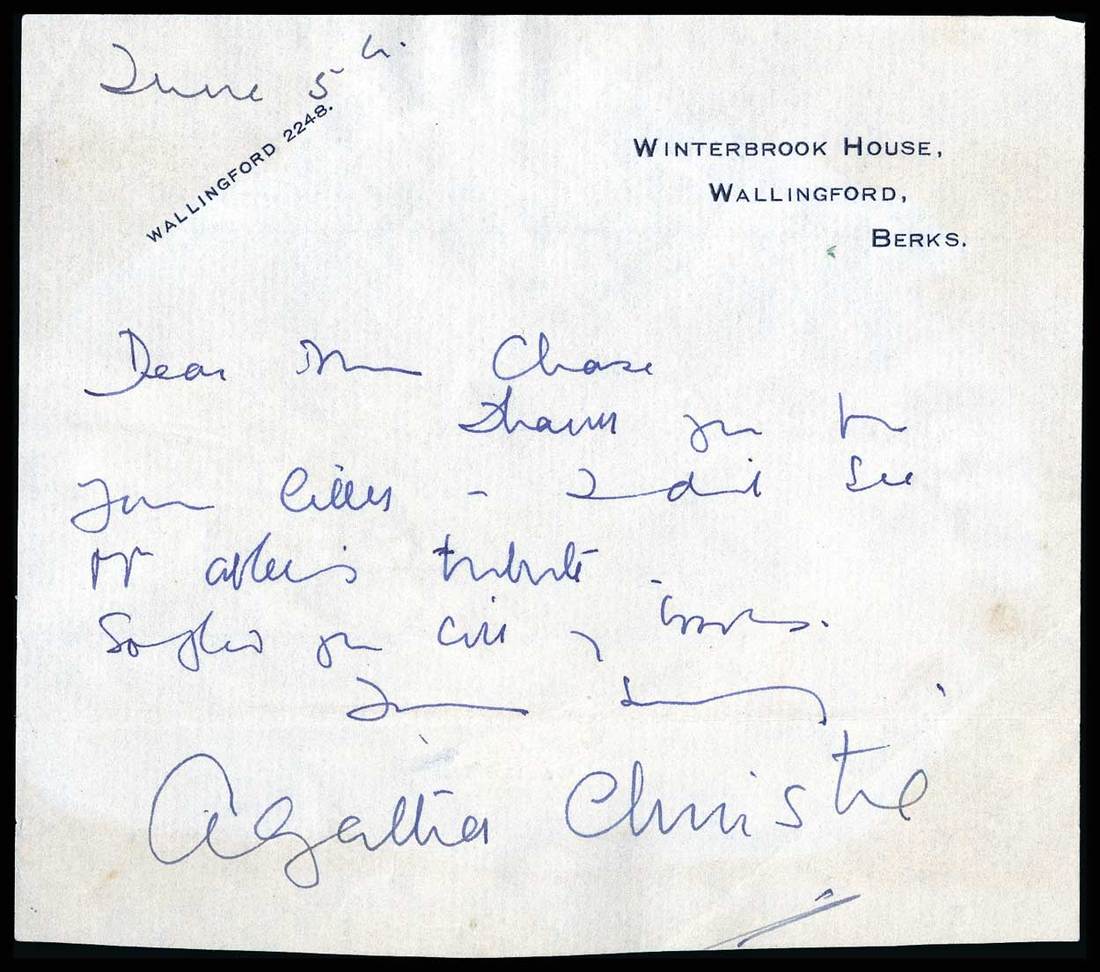 June 5th.
WALLINGFORD 2248.
WINTERBROOK HOUSE,
WALLINGFORD,
BERKS.
Dear Chase
Thank you for
your letter - I did see
tribute -
you books.
Yours sincerely
Agatha Christie